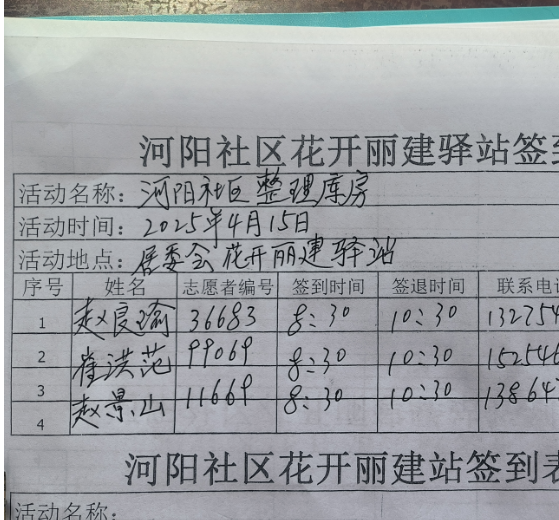 河阳社区花开丽建驿站签到
活动名称：河阳社区整理库房
活动时间：2025年4月15日
活动地点：居委会花开丽建驿站
序号 姓名 志愿者编号 签到时间 签退时间 联系电话
1 赵良瑜 36683 8:30 10:30 132754
2 崔洪范 99069 8:30 10:30 152546
3 赵景山 11669 8:30 10:30 13864
4
河阳社区花开丽建站签到表
活动名称：